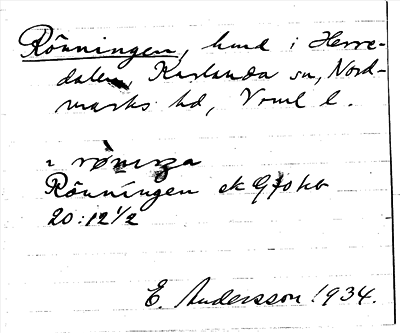 Rönningen, hmd i Herre-
dalen, Karlanda sn, Nord-
marks hd, Vrml l.
i
Rönningen ek
20:12½
E. Andersson 1934.